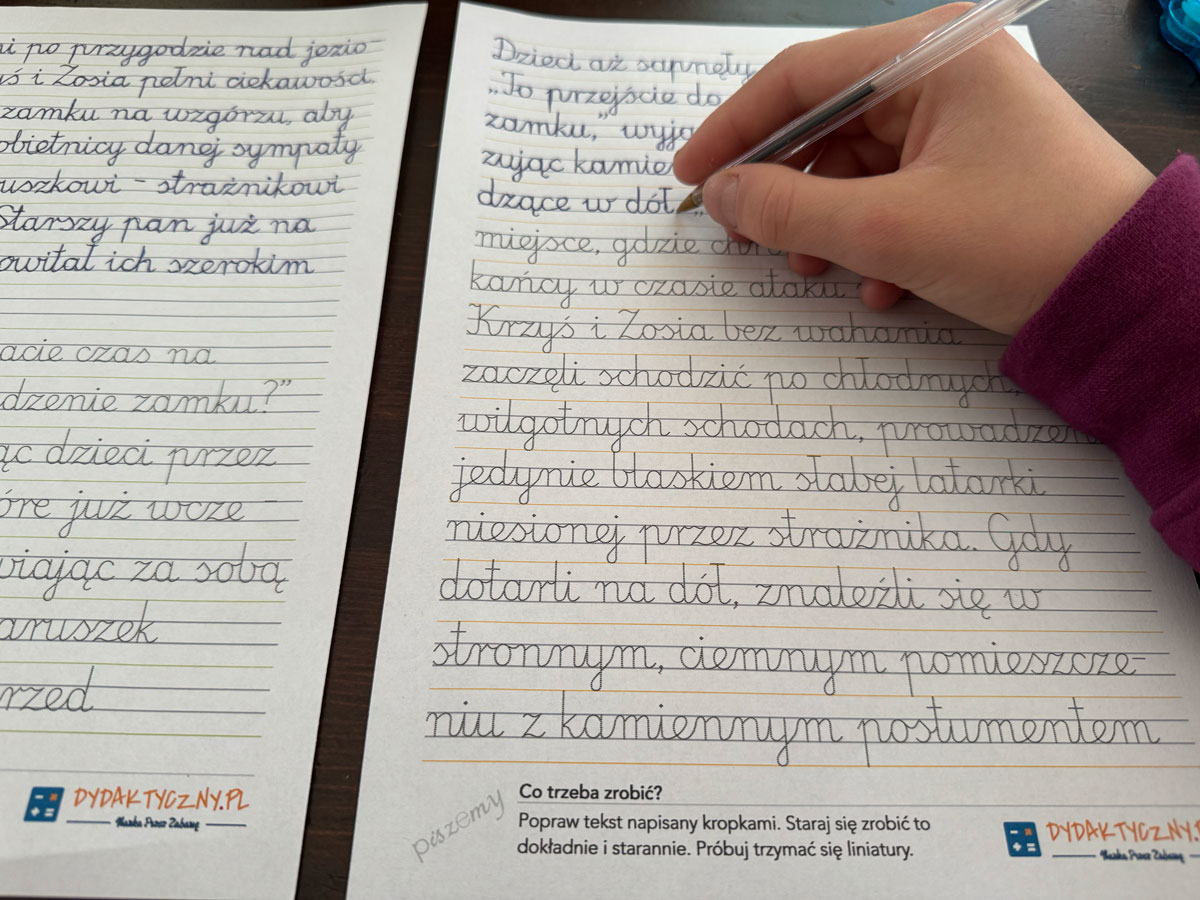 ni po przygodzie nad jezio-
yś i Zosia pełni ciekawości
zamku na wzgórzu, aby
obietnicy danej sympaty
uszkowi - strażnikowi
Starszy pan już na
owitał ich szerokim
acie czas na
dzenie zamku?"
ąc dzieci przez
óre już wcze-
wiając za sobą
aruszek
rzed
DYDAKTYCZNY.PL
Nauka Przez Zabawę
Dzieci aż sapnęły
„To przejście do
zamku," wyja
zując kamie
dzące w dół. „
miejsce, gdzie chro
kańcy w czasie ataku
Krzyś i Zosia bez wahania
zaczęli schodzić po chłodnych,
wilgotnych schodach, prowadzeni
jedynie blaskiem słabej latarki
niesionej przez strażnika. Gdy
dotarli na dół, znaleźli się w
stronnym, ciemnym pomieszcze-
niu z kamiennym postumentem
piszemy
Co trzeba zrobić?
Popraw tekst napisany kropkami. Staraj się zrobić to
dokładnie i starannie. Próbuj trzymać się liniatury.
DYDAKTYCZNY.P
Nauka Przez Zabawę